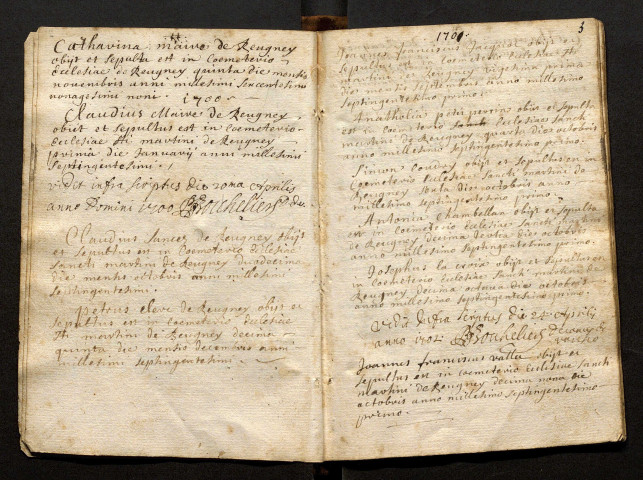 Catharina maire de Reugney
obijt et sepulta est in Coemeterio
Ecclesiae de Reugney quinta die mensis
novembris anni millesimi sexcentesimi
nonagesimi noni.
1700.
Claudius Maire de Reugney
obiit et sepultus est in Coemeterio
Ecclesiae Sti martini de Reugney
prima die Januarij anni millesimi
septingentesimi.
vidit infra scriptus die Aprilis
anno Domini 1700 Bochelier
Claudius de Reugney obijt
et sepultus est in Coemeterio Ecclesiae
sancti martini de Reugney duodecima
die mensis octobris anni millesimi
septingentesimi.
petrus cleve de Reugney obijt et
sepultus est in coemeterio Ecclesiae
Sti martini de Reugney decima
quinta die mensis decembris anni
millesimi septingentesimi
1701.
3
Joannes franciscus Jacquet obijt et
sepultus est in Coemeterio Ecclesiae Sti
martini de Reugney prima
die mensis septembris anno millesimo
septingentesimo primo.
Anatholia petit perrin obijt et sepulta
est in Coemeterio Ecclesiae sancti
martini de Reugney quarta die octobris
anno millesimo septingentesimo primo.
Simon obijt et sepultus est in
Coemeterio Ecclesiae sancti martini de
Reugney sexta die octobris anno
millesimo septingentesimo primo.
Antonia chambellan obijt et sepulta
est in Coemeterio Ecclesiae sancti martini
de Reugney decima sexta die octobris
anno millesimo septingentesimo primo.
Josephus la croix obijt et sepultus est
in Coemeterio Ecclesiae sancti martini de
Reugney decima octava die octobris
anno millesimo septingentesimo primo.
Vidit infra scriptus die 24 Aprilis
anno 1702 Bochelier
Joannes franciscus valle obijt et
sepultus est in coemeterio Ecclesiae sancti
martini de Reugney decima nona die
octobris anno millesimo septingentesimo
primo.